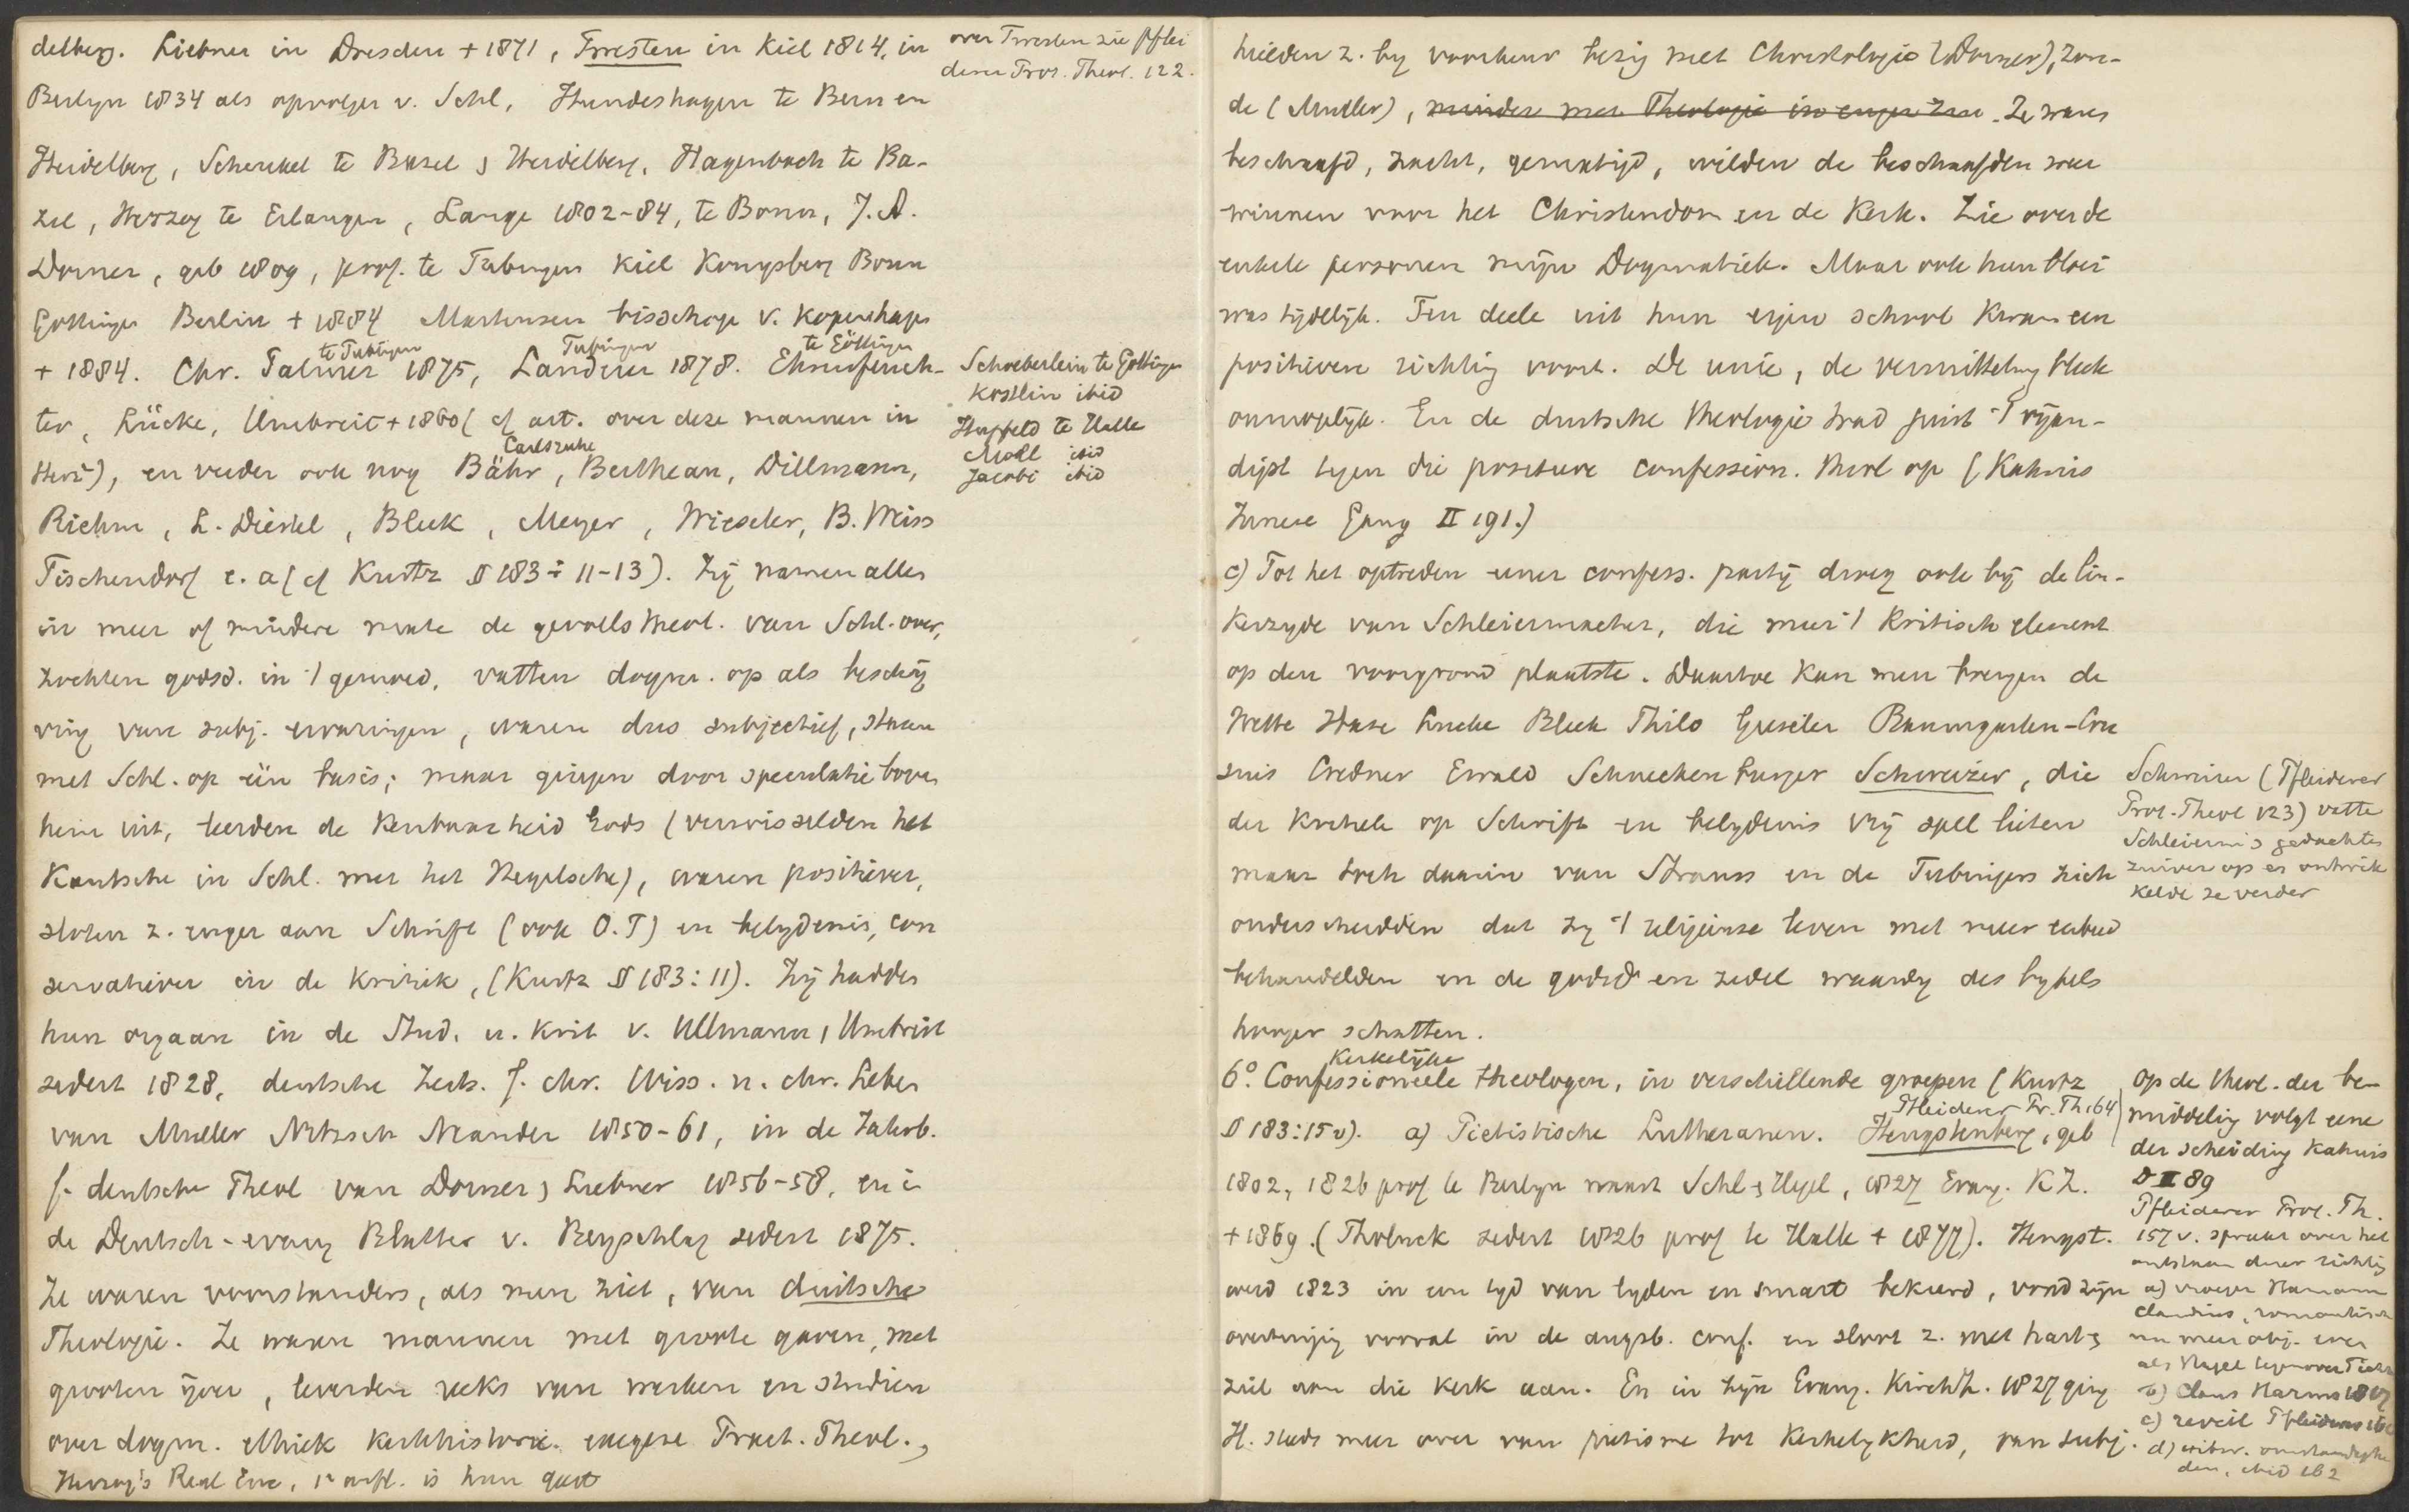 delberg. Liebner in Dresden + 1871, Twesten in Kiel 1814, in
Berlijn 1834 als opvolger v. Schl, Hundeshagen te Bern en
Heidelberg, Schenkel te Bazel & Heidelberg, Hagenbach te Ba-
zel, Herzog te Erlangen, Lange 1802-84, te Bonn, J. A.
Dorner, geb 1809, prof. te Tubingen Kiel Konigsberg Bonn
Gottingen Berlin + 1884 Martensen bisschop v. Kopenhagen
te Tubingen Tubingen te Göttingen
+ 1884. Chr. Palmer 1875, Landerer 1878. Ehrenfeuch-
ter, Lücke, Umbreit + 1860 (cf art. over deze mannen in
Carlsruhe
Herz), en verder ook nog Bähr, Bertheau, Dillmann,
Riehm, L. Diestel, Bleek, Meyer, Wieseler, B. Weiss
Tischendorf e. a (cf Kurtz § 183: 11-13). Zij namen allen
in meer of mindere mate de gevoelstheol. van Schl. over,
zochten godsd. in 't gemoed, vatten dogm. op als beschrij
ving van subj. ervaringen, waren dus subjectief, staan
met Schl. op één basis; maar gingen door speculatie boven
hem uit, leerden de kenbaarheid Gods (verwisselden het
Kantsche in Schl. met het Hegelsche), waren positiever,
sloten z. enger aan Schrift (ook O.T) en belydenis, con
servatiever in de kritiek, (Kurtz § 183: 11). Zij hadden
hun orgaan in de Stud. u. Krit v. Ullmann, Umbreit
sedert 1828, deutsche Zeits. f. chr. Wiss. u. chr. Leben
van Muller Nitzsch Neander 1850-61, in de Jahrb.
f. deutsche Theol van Dorner & Liebner 1856-58, en i
de Deutsch-evang Blatter v. Beyschlag sedert 1875.
Ze waren voorstanders, als men ziet, van duitsche
Theologie. Ze waren mannen met groote gaven, met
grooten ijver, leverden reeks van werken en studien
over dogm. ethiek kerkhistorie. exegese Pract. Theol.,
Herzog's Real Enc, 1e aufl. is hun geest
over Twesten zie Pflei
derer Prot. Theol. 122.
Schoeberlein te Gottingen
Kostlin ibid
Hupfeld te Halle
Moll ibid
Jacobi ibid
hielden z. by voorkeur bezig met Christologie (Dorner), zon-
de (Muller), minder met Theologie in enger zin. Ze waren
beschaafd, zacht, gematigd, wilden de beschaafden weer
winnen voor het Christendom en de Kerk. Zie over de
enkele personen mijn Dogmatiek. Maar ook hun bloei
was tijdelijk. Ten deele uit hun eigen school kwam een
positievere richting voort. De unie, de vermitteling bleek
onmogelijk. En de duitsche theologie trad juist 't vijan-
digst tegen die positieve confession. theol op (Kahnis
Innere Gang II 191.)
c) Tot het optreden eener confess. partij droeg ook bij de lin-
kerzyde van Schleiermacher, die meer 't kritisch element
op den voorgrond plaatste. Daartoe kan men brengen de
Wette Hase Lucke Bleek Thilo Gieseler Baumgarten-Cru
sius Credner Ewald Schneckenburger Schweizer, die
der kritiek op Schrift en belydenis vrij spel lieten
maar toch daarin van Strauss en de Tubingers zich
onderscheidden dat zy 't religieuze leven met meer eerbied
behandelden en de godsd en zedel waarde des bybels
hooger schatten.
Kerkelijke
6° Confessioneele theologen, in verschillende groepen (Kurtz
Pfleiderer Pr. Th 164
§ 183: 15 v). a) Pietistische Lutheranen. Hengstenberg, geb
1802, 1826 prof te Berlyn naast Schl & Hegel, 1827 Evang. K Z.
+ 1869. (Tholuck sedert 1826 prof te Halle + 1877). Hengst.
werd 1823 in een tyd van lyden en smart bekeerd, vond zyn
overtuiging vooral in de augsb. conf. en sloot z. met hart &
ziel aan die kerk aan. En in zijn Evang. Kirch Z. 1827 ging
H. steeds meer over van pietisme tot Kerkelykheid, van subj.
Schweizer (Pfleiderer
Prot. Theol 123) vatte
Schleierm's gedachten
zuiver op en ontwik
kelde ze verder
Op de theol. der be-
middeling volgt eene
der scheiding Kahnis
D II 89
Pfleiderer Prot. Th.
157 v. spraak over het
ontstaan dezer richting
a) vroeger Hamann
Claudius, romantisch
nu meer obj.
als Hegel tegenover
b) Claus Harms 1817
c) reveil Pfleiderer
d) omstandighe
den, ibid 162